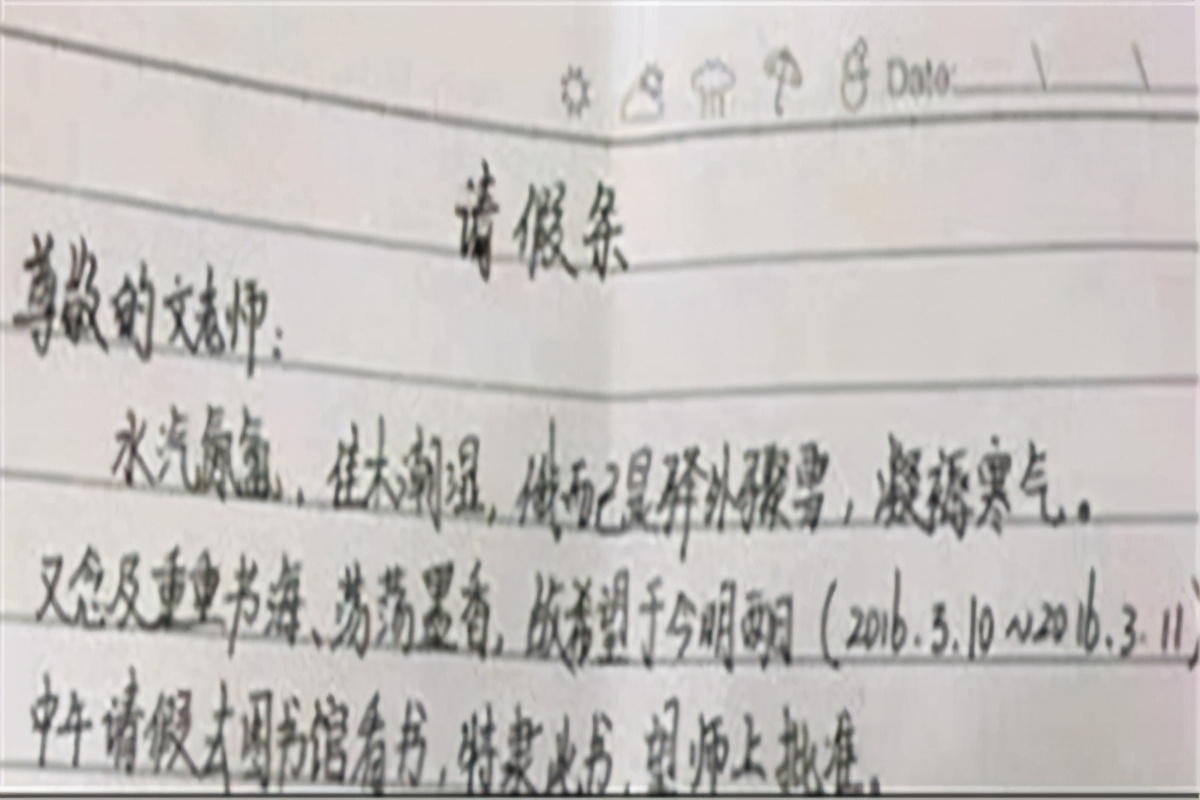 Date:
请假条
尊敬的文老师:
水汽氤氲、佳木潮湿,俄而已是驿外骤雪,凝褥寒气。
又念及重重书海、荡荡墨香,故希望于今明两日(2016.3.10~2016.3.11)
中午请假去图书馆看书,特禀此书,望师上批准。